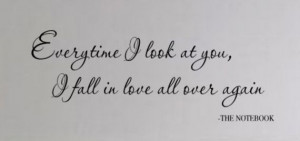 Everytime I look at you,
I fall in love all over again
-THE NOTEBOOK